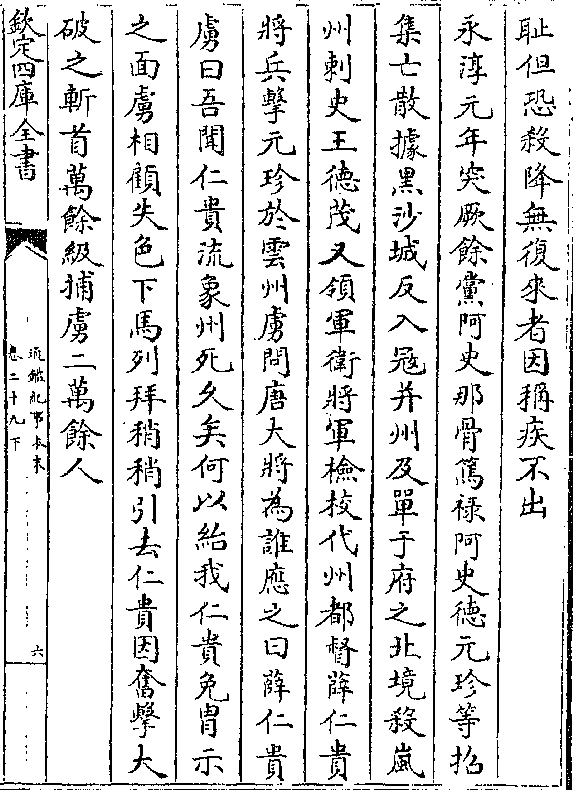 耻但恐殺降無復來者因稱疾不出
永淳元年突厥餘黨阿史那骨篤禄阿史徳元珍等招
集亡散據黑沙城反入冦并州及單于府之北境殺嵐
州刺史王徳茂又領軍衛將軍檢校代州都督薛仁貴
將兵擊元珍於雲州虜問唐大將為誰應之曰薛仁貴
虜曰吾聞仁貴流象州死久矣何以紿我仁貴免胄示
之面虜相顧失色下馬列拜稍稍引去仁貴因奮擊大
破之斬首萬餘級捕虜二萬餘人
欽定四庫全書
通鑑紀事本末
卷二十九下
六